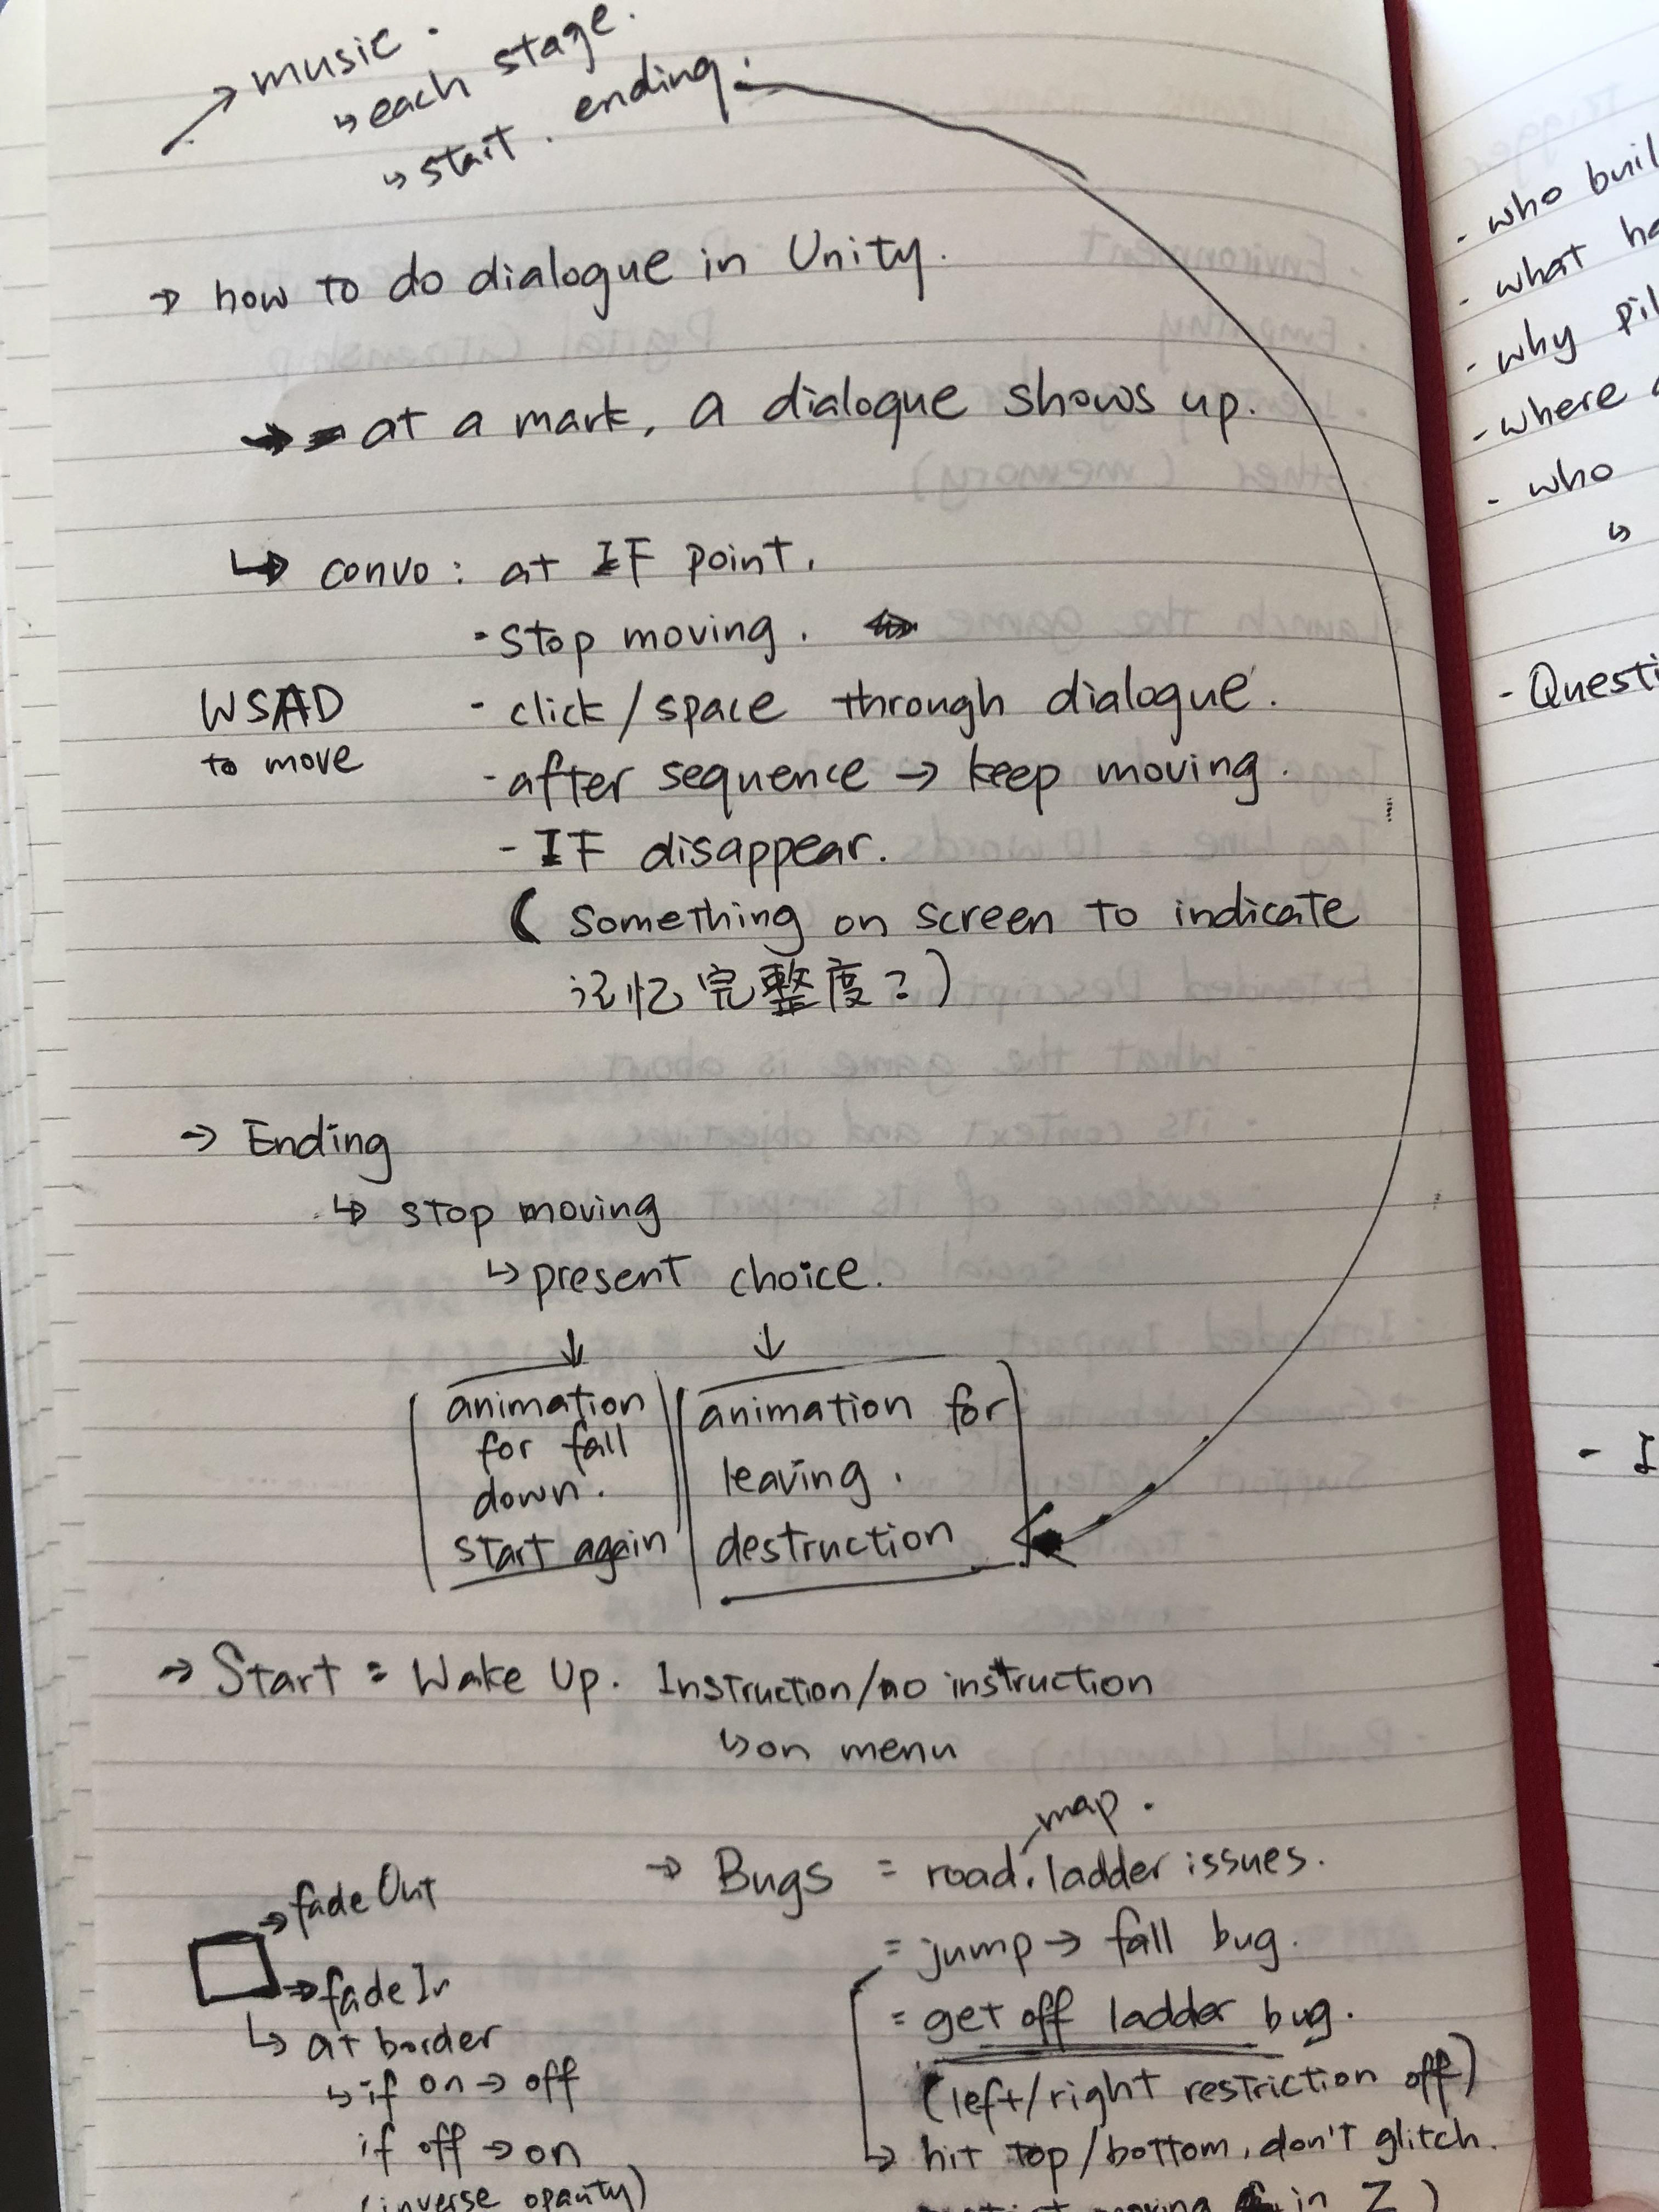 → music.
↳ each stage.
↳ start. ending.
→ how to do dialogue in Unity.
→ at a mark, a dialogue shows up.
↳ convo: at IF point.
- stop moving.
WSAD
to move
- click/space through dialogue.
- after sequence → keep moving.
- IF disappear.
( something on screen to indicate
记忆完整度?)
→ Ending
↳ stop moving
↳ present choice.
↓ ↓
animation
for fall
down.
start again
animation for
leaving.
destruction
→ Start = Wake Up. Instruction/no instruction
↳ on menu
map.
→ Bugs = road. ladder issues.
= jump → fall bug.
= get off ladder bug.
(left/right restriction off)
↳ hit top/bottom, don't glitch.
moving in Z)
→ fadeOut
→ fadeIn
↳ at border
↳ if on → off
if off → on
(inverse opacity)
- who
- what
- why
- where
- who
↳